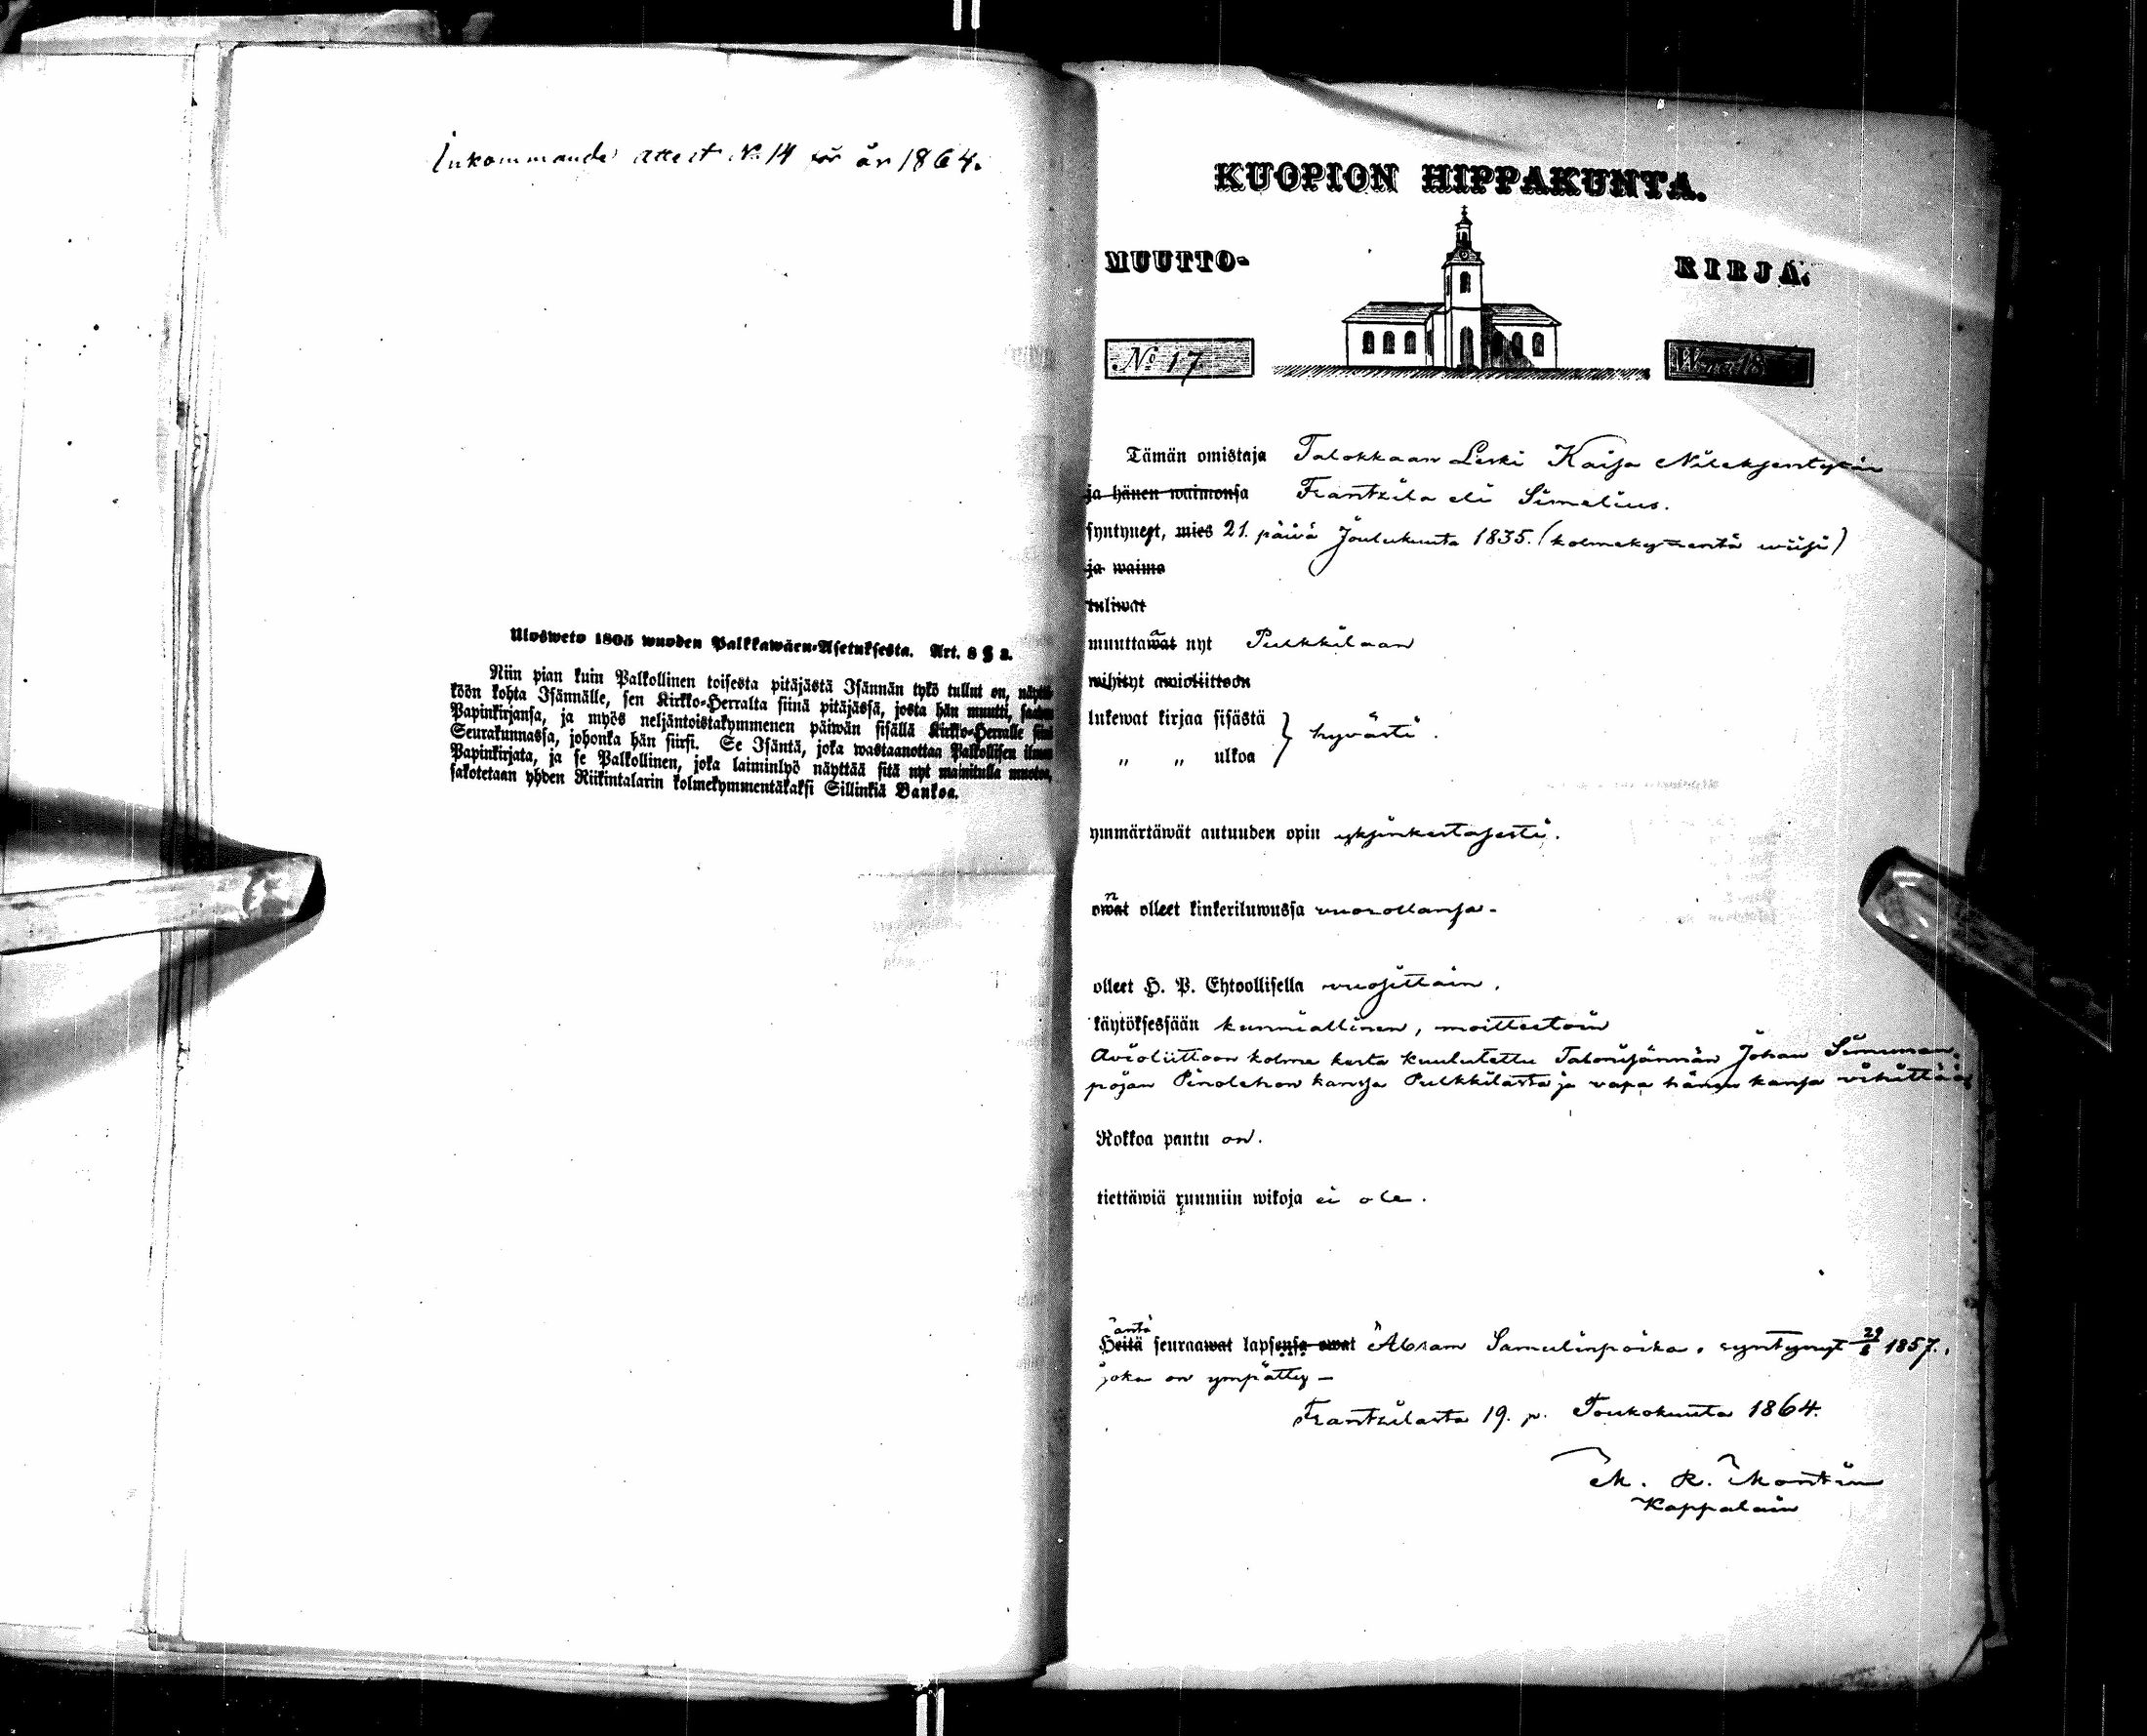 Inkommande attest No 14 för år 1864.
Ulosweto 1805 wuoden Palkkawäen-Asetuksesta. Art. 8 § 3.
Niin pian kuin Palkollinen toisesta pitäjästä Isännän tykö tullut on, näyttä-
köön kohta Isännälle, sen Kirkko-Herralta siinä pitäjässä, josta hän muutti, saadun
Papinkirjansa, ja myös neljäntoistakymmenen päiwän sisällä Kirkko-Herralle siinä
Seurakunnassa, johonka hän siirsi. Se Isäntä, joka wastaanottaa Palkollisen ilman
Papinkirjata, ja se Palkollinen, joka laiminlyö näyttää sitä nyt mainitulla muotoa,
sakotetaan yhden Riikintalarin kolmekymmentäkaksi Sillinkiä Bankoa.
KUOPION HIPPAKUNTA.
MUUTTO-
KIRJA.
No 17
Tämän omistaja Talokkaan Leski Kaisa
ja hänen waimonsa Frantzila eli Simelius.
syntynyt, mies 21. päivä Joulukuuta 1835. (kolmekymmentä wiisi)
ja waimo
tuliwat
muuttawat a nyt Pulkkilaan
wihityt awioliittoon
lukewat kirjaa sisästä } hyvästi.
" " ulkoa
ymmärtäwät autuuden opin yksinkertasesti.
owat n olleet kinkeriluwussa vuorollansa.
olleet H. P. Ehtoollisella vuosittain.
käytöksessään kunniallinen, moitteetoin
Avioliittoon kolme kerta kuulutettu Talonisännän Johan Simunan-
pojan Pinolehon kanssa Pulkkilasta ja vapa hänen kansa vihittää
Rokkoa pantu on.
tiettäwiä ruumiin wikoja ei ole.
äntä
Heitä seuraawat lapsensa owat Abram Samulinpoika, syntynyt 29/8 1857.,
joka on ympätty –
Frantzilasta 19. p. Toukokuuta 1864.
M. R. Montin
Kappalain